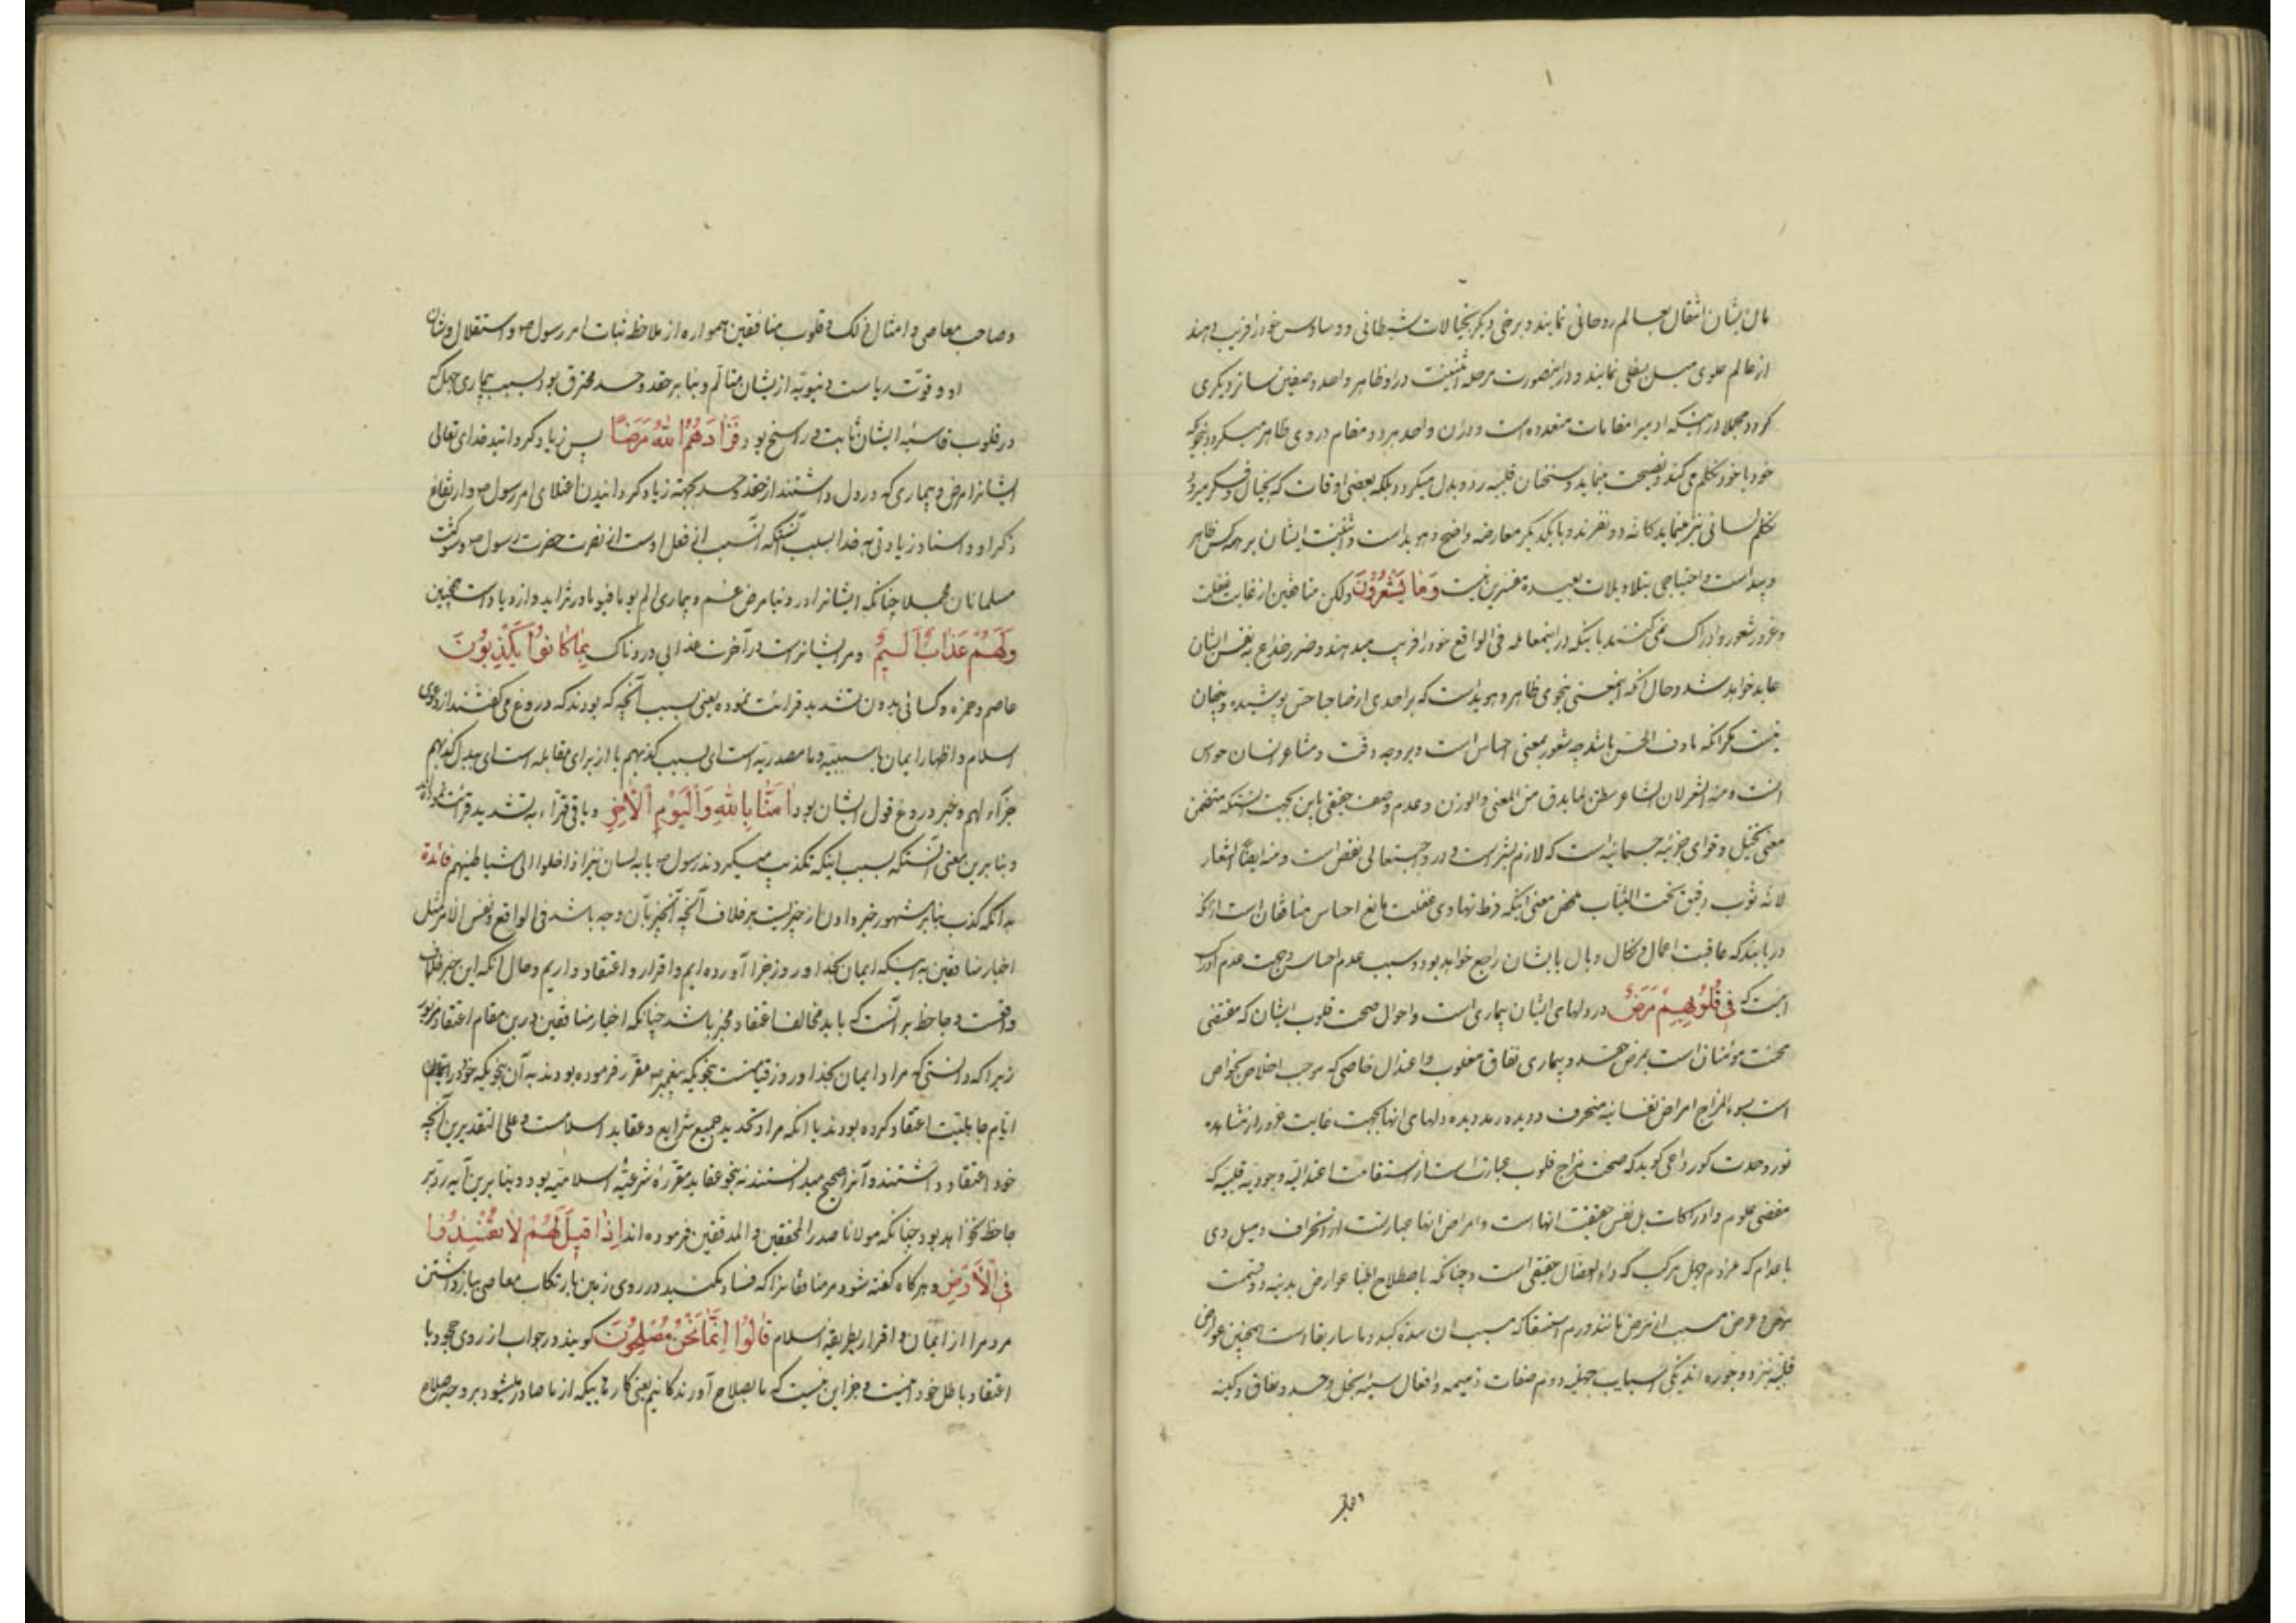 مان بشان انتقال بعالم روحانی نمایند و برخی دیگر بخیالات شیطانی و وساوس خود را فریب دهند
از عالم علوی میل بسفلی نمایند و در اینصورت مرحله اثنینیت در او ظاهر واحد و صفین ساز دیگری
گردد مجملا در اینکه آدمیرا مقامات متعدده است و در آن واحد بدو مقام در وی ظاهر میگردد بنحویکه
خود با خود تکلم می کند و نصیحت مینماید و سخنان قلبیه رد و بدل میگردد بلکه بعضی اوقات که بخیال و فکر میرود
تکلم لسانی نیز مینماید کانه دو نفرند و با یکدیگر معارضه واضح و هویداست و اثنینیت ایشان بر همه کس ظاهر
و پیداست و احتیاجی بتاویلات بعیده مفسرین نیست وَمَا يَشْعُرُونَ ولکن منافقین از غایت غفلت
و غرور شعور و ادراک نمی کنند باینکه در اینمعامله فی الواقع خود را فریب میدهند و ضرر خداع به نفس ایشان
عاید خواهد شد و حال آنکه اینمعنی بنحوی ظاهر و هویداست که بر احدی از صاحبان حس پوشیده و پنهان
نیست مگر آنکه ماوف الحس باشد چه شعور بمعنی احساس است و بر وجه دقت و مشاعر انسان حواس
انست و منه الشعر لان الشاعر یفطن لما یدق من المعنی والوزن و عدم وصف حقیقی باین بجهت آنستکه متضمن
معنی تخیل و قوای جزئیه جسمانیه است که لازم بشر است و در واجبتعالی نقص است و منه ایضا الشعار
لانه ثوب رقیق تحت الثیاب محض معنی اینکه فرط تهادی غفلت مانع احساس منافقان است از آنکه
دریابند که عاقبت اعمال و نکال و وبال بایشان راجع خواهد بود و سبب عدم احساس و جهت عدم ادراک
آنست که فِي قُلُوبِهِمْ مَرَضٌ در دلهای ایشان بیماری است و احوال صحت قلوب ایشان که مقتضی
محبت مؤمنان است بمرض حقد و بیماری نفاق مغلوب و اعتدال خاصی که موجب اخلاص بخواص
است بسوء المزاج امراض نفسانیه منحرف و دیده رمد دیده دلهای آنها بجهت غایت غرور از مشاهده
نور وحدت کور داعی گوید که صحت مزاج قلوب عبارتست از استقامت اعتدالیه وجودیه قلبیه که
مقتضی علوم و ادراکات بل نفس حقیقت آنهاست و امراض آنها عبارتست از انحراف و میل وی
باعدام که عوادم جهل مرکب که داء العضال حقیقی است و چنانکه باصطلاح اطبا عوارض بدنیه دو قسمت
مرض و عرض مسبب از مرض مانند ورم استسقا که مسبب از سده کبد و ماساریقا است همچنین عوارض
قلبیه نیز دو جوره اند یکی اسباب جهلیه دوم صفات ذمیمه و افعال سیئه بخل و حسد و نفاق و کینه
وصاحب
وصاحب معاصی و امثال ذلک و قلوب منافقین همواره از ملاحظه ثبات امر رسول ص و استقلال و شان
او و قوت ریاست دنیویه ازیشان متالم و بنا بر حقد و حسد محترق بود بسبب بیماری جهل که
در قلوب قاسیه ایشان ثابت و راسخ بود فَزَادَهُمُ اللهُ مَرَضًا پس زیاد گردانید خدای تعالی
ایشانرا مرض و بیماری که در دل داشتند از حقد و حسد بجهته زیاد گردانیدن اعتلای امر رسول ص و ارتفاع
ذکر او و اسناد زیادتی به خدا بسبب آنستکه آن سبب از فعل اوست از نصرت حضرت رسول ص و شوکت
مسلمانان مجملا چنانکه ایشانرا در دنیا مرض غم و بیماری الم یوما فیوما در تزاید و ازدیاد است همچنین
وَلَهُمْ عَذَابٌ أَلِيمٌ و مر ایشانراست در آخرت عذابی دردناک بِمَا كَانُوا يَكْذِبُونَ
عاصم و حمزه و کسائی بدون تشدید قرائت نموده یعنی بسبب آنچه که بودند که دروغ می گفتند از دعوی
اسلام و اظهار ایمان با سببیه و ما مصدریه است ای بسبب کذبهم یا از برای مقابله است ای ببدل کذبهم
جزاء لهم و خبر دروغ قول ایشان بود اٰمَنَّا بِاللهِ وَالْيَوْمِ الْاٰخِرِ و باقی قراء به تشدید قرائت نموده‌اند
و بنا برین معنی آنستکه بسبب اینکه تکذیب میکردند رسول ص یا به لسان نیز اذا خلوا الی شیاطینهم فائدة
بدانکه کذب بنابر مشهور خبر دادن از چیزیست بر خلاف آنچه آنچیز بآن وجه باشد فی الواقع و نفس الامر مثل
اخبار منافقین به اینکه ایمان بخدا و روز جزا آورده ایم و اقرار و اعتقاد داریم و حال آنکه این خبر خلاف
واقعست و جاحظ بر آنست که باید مخالف اعتقاد مخبر باشد چنانکه اخبار منافقین درین مقام اعتقاد مزبور
زیرا که دانستی که مراد ایمان بخدا و روز قیامتست بنحویکه پیغمبر ص مقرر فرموده بودند نه آن بنحویکه خود در
ایام جاهلیت اعتقاد کرده بودند یا آنکه مراد تحدید جمیع شرایع و عقاید اسلامست و علی التقدیرین آنچه
خود اعتقاد داشتند و آنرا صحیح میدانستند نه بنحو عقاید مقرره شرعیه اسلامیه بود و بنا برین آیه رد بر
جاحظ نخواهد بود چنانکه مولانا صدر المحققین و المدققین فرموده اند اِذَا قِيلَ لَهُمْ لَا تُفْسِدُوا
فِي الْأَرْضِ و هرگاه گفته شود مر منافقانرا که فساد مکنید در روی زمین بارتکاب معاصی بباز داشتن
مردم را از ایمان و اقرار بطریقه اسلام قَالُوا إِنَّمَا نَحْنُ مُصْلِحُونَ گویند در جواب از روی جحود با
اعتقاد باطل خود اینست و جز این نیست که ما بصلاح آورندگانیم یعنی کارهاییکه از ما صادر میشود بر وجه صلاح